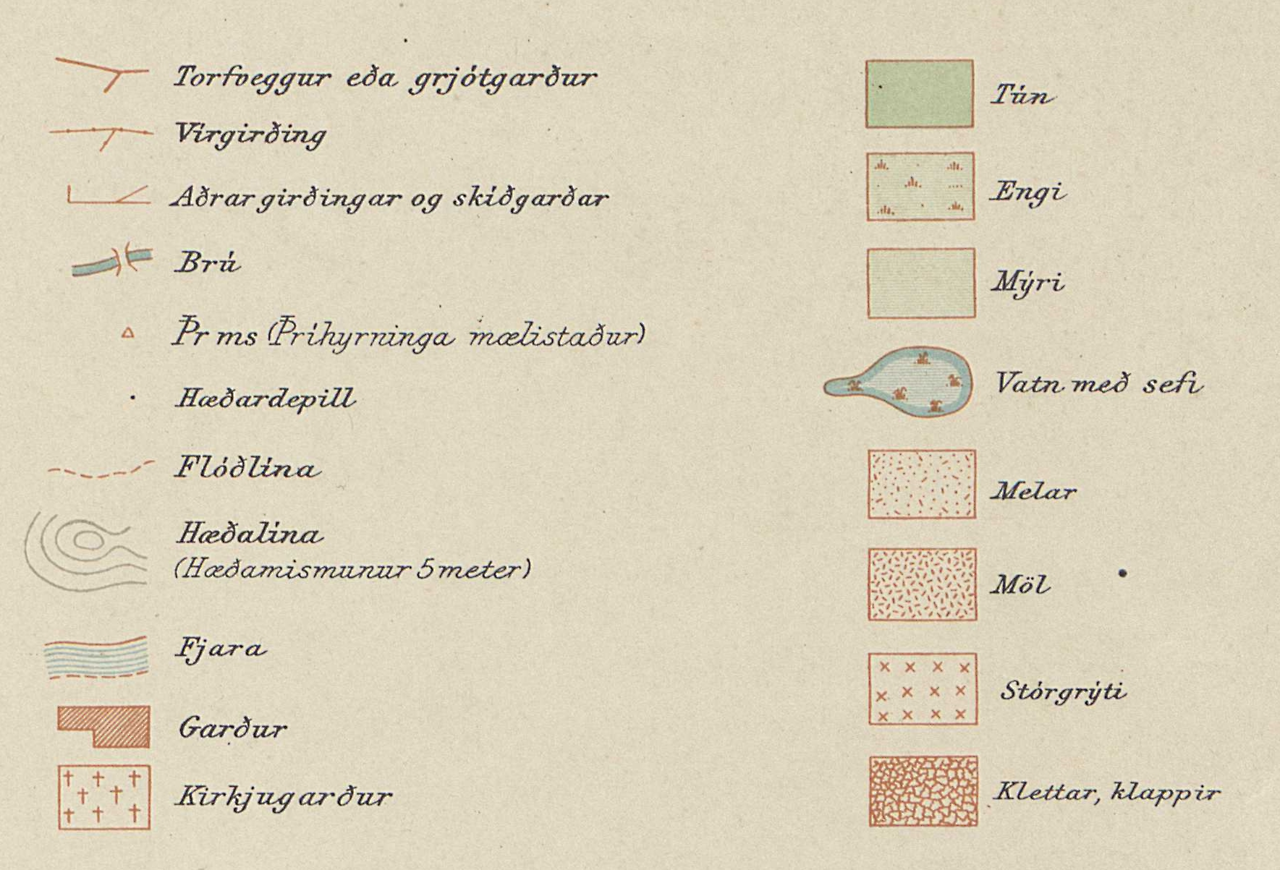 Torfveggur eða grjótgarður
Vírgirðing
Aðrar girðingar og skíðgarðar
Brú
Þr ms (Þríhyrninga mælistaður)
Hæðardepill
Flóðlína
Hæðalína
(Hæðamismunur 5 meter)
Fjara
Garður
Kirkjugarður
Tún
Engi
Mýri
Vatn með sefi
Melar
Möl
Stórgrýti
Klettar, klappir